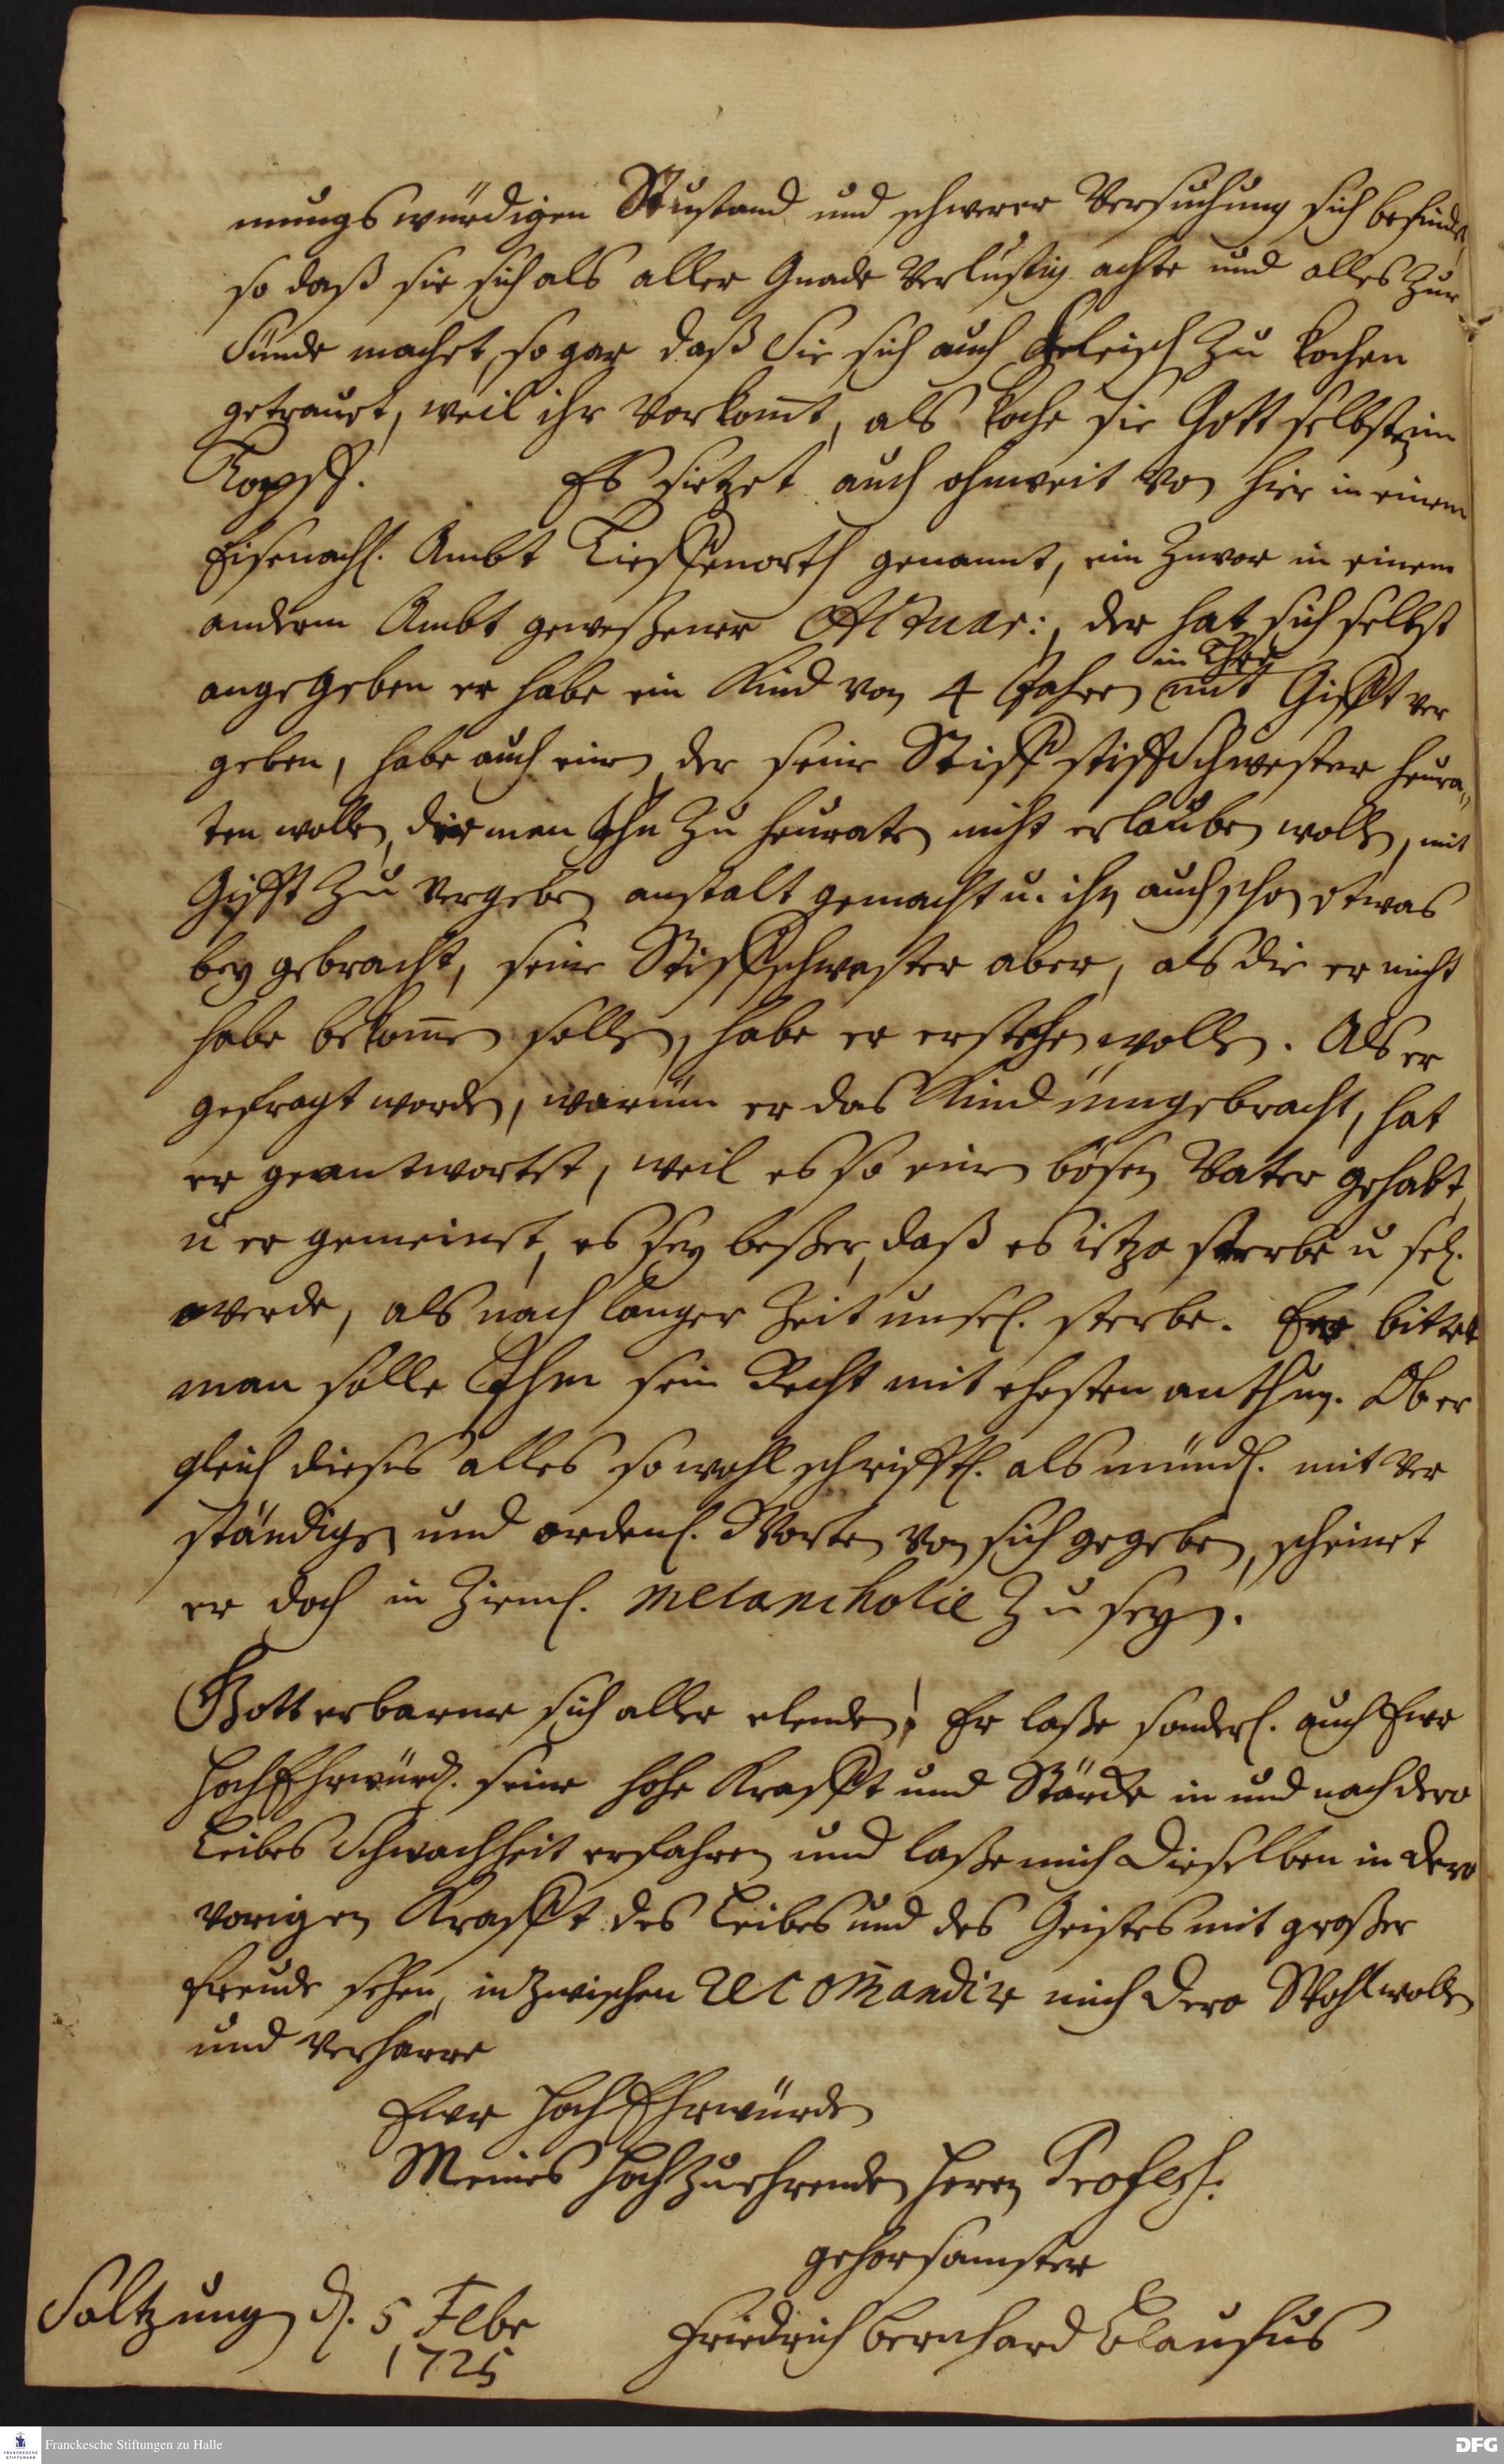 mungswürdigen Zustand und schwerer Versuchung sich befindet,
so daß sie sich als aller Gnade verlustig achte und alles zur
Sünde machet, so gar daß Sie sich auch Fleisch zu kochen
getrauet, weil ihr vorkomt, als koche sie Gott selbst im
Topff. Es sietzet auch ohnweit von hier in einem
Eisenachl. Ambt Tieffenorth genannt, ein zuvor in einem
anderm Ambt geweßener Actuar:, der hat sich selbst
angegeben er habe ein Kind von 4 Jahren mit Gifft ver
im Thee
geben, habe auch einen, der seine Stieffstiefschwester heura-
ten wollen, die man Ihn zu heuraten nicht erlauben wollen, mit
Gifft zu vergeben anstalt gemacht u. ihm auch schon etwas
bey gebracht, seine Stieffschwester aber, als die er nicht
habe bekommen sollen, habe er erstechen wollen. Als er
gefragt worden, warüm er das Kind ümgebracht, hat
er geantwortet, weil es so einen bösen Vater gehabt,
u er gemeinet, es sey beßer, daß es ietzo sterbe u sel.
werde, als nach langer Zeit unsel. sterbe. Er bittet
man solle Ihm sein Recht mit ehesten anthun. Ob er
gleich dieses alles so wohl schrifftl. als mündl. mit ver
ständigen und ordenl. Worten von sich gegeben, scheinet
er doch in zieml. melancholie zu seyn.
Gott erbarme sich aller elenden! Er laße sonderl. auch Ewr
HochEhrwürd. seine hohe Krafft und Stärcke in und nach dero
Leibes Schwachheit erfahren und laße mich Dieselben in dero
vorigen Krafft des Leibes und des Geistes mit großer
freude sehen, inzwischen recomandire mich dero Wohlwollen
und verharre
Ewr HochEhrwürden
Meines Hochzuehrenden Herrn Profess.
gehorsamster
Saltzungen d. 5 Febr
1725
Friedrich Bernhard Clausius
Franckesche Stiftungen zu Halle
DFG